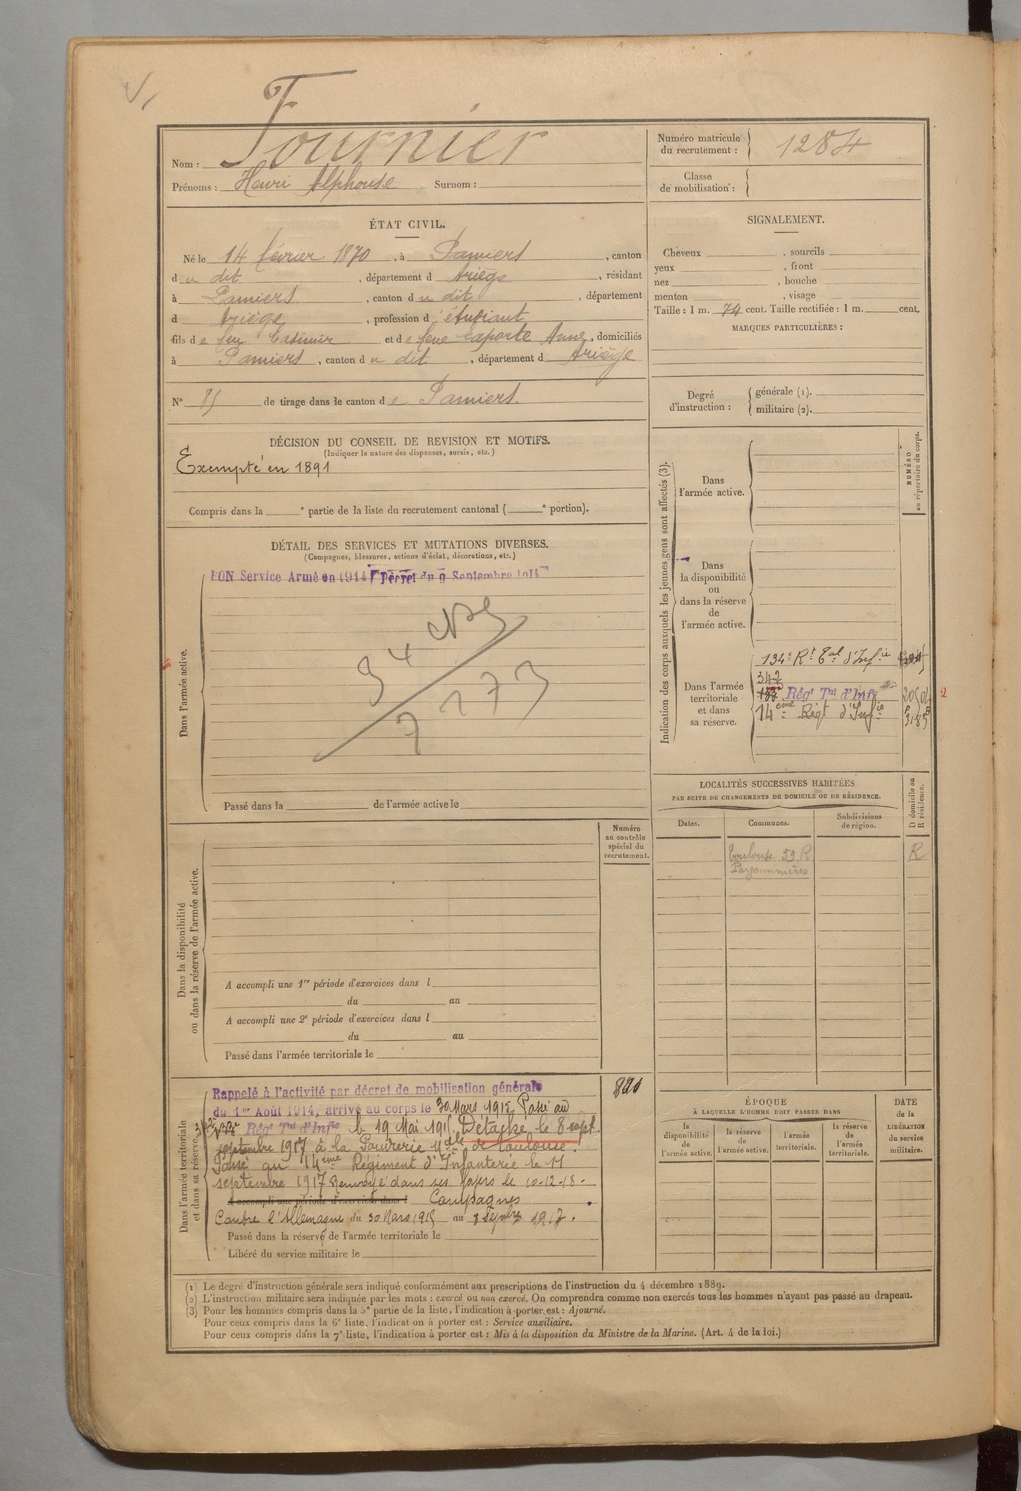 Nom : Fournier
Prénoms : Henri Alphonse . Surnom :
Numéro matricule du recrutement : 1284
Classe de mobilisation :
ÉTAT CIVIL.
Né le 14 février 1870 , à Pamiers , canton
du dit , département d Ariège , résidant
à Pamiers , canton du dit , département
d Ariège , profession d'étudiant
fils de feu Casimir et de feue Laporte Anne, domiciliés
à Pamiers , canton du dit , département d Ariège
N° 85 de tirage dans le canton de Pamiers
SIGNALEMENT.
Cheveux , sourcils
yeux , front
nez , bouche
menton , visage
Taille : 1 m. 74 cent. Taille rectifiée : 1 m. cent.
MARQUES PARTICULIÈRES :
Degré d'instruction : générale (1).
militaire (2).
DÉCISION DU CONSEIL DE REVISION ET MOTIFS.
(Indiquer la nature des dispenses, sursis, etc.)
Exempté en 1891
Compris dans la e partie de la liste du recrutement cantonal ( e portion).
DÉTAIL DES SERVICES ET MUTATIONS DIVERSES.
(Campagnes, blessures, actions d'éclat, décorations, etc.)
Dans l'armée active.
BON Service Armé en 1914 Décret du 9 Septembre 1914
Passé dans la de l'armée active le
Indication des corps auxquels les jeunes gens sont affectés (3).
NUMÉRO au répertoire du corps.
Dans l'armée active.
Dans la disponibilité ou dans la réserve de l'armée active.
Dans l'armée territoriale et dans sa réserve.
134e Rt Tal d'Infie
342
133 Régt Tal d'Infie
14eme Régt d'Infie
LOCALITÉS SUCCESSIVES HABITÉES
PAR SUITE DE CHANGEMENTS DE DOMICILE OU DE RÉSIDENCE.
Dates. Communes. Subdivisions de région. D domicile ou R résidence.
Toulouse 59 R R
Numéro au contrôle spécial du recrutement.
Dans la disponibilité ou dans la réserve de l'armée active.
A accompli une 1re période d'exercices dans l
du au
A accompli une 2e période d'exercices dans l
du au
Passé dans l'armée territoriale le
Dans l'armée territoriale et dans sa réserve.
Rappelé à l'activité par décret de mobilisation générale
du 1er Août 1914, arrivé au corps le 30 Mars 1915 Passé au
Régt Tal d'Infie le 19 Mai 1915 Détaché le 8 sept.
septembre 1917 à la Poudrerie Nale de Toulouse.
Passé au 14eme Régiment d'Infanterie le 11
septembre 1917 Renvoyé dans ses foyers le 10-12-18.
A accompli une période d'exercices dans l Campagnes
Contre l'Allemagne du 30 Mars 1915 au 8 Septbre 1917.
Passé dans la réserve de l'armée territoriale le
Libéré du service militaire le
ÉPOQUE
À LAQUELLE L'HOMME DOIT PASSER DANS
la disponibilité de l'armée active. la réserve de l'armée active. l'armée territoriale. la réserve de l'armée territoriale.
DATE de la LIBÉRATION du service militaire.
(1) Le degré d'instruction générale sera indiqué conformément aux prescriptions de l'instruction du 4 décembre 1889.
(2) L'instruction militaire sera indiquée par les mots : exercé ou non exercé. On comprendra comme non exercés tous les hommes n'ayant pas passé au drapeau.
(3) Pour les hommes compris dans la 5e partie de la liste, l'indication à porter est : Ajourné.
Pour ceux compris dans la 6e liste, l'indication à porter est : Service auxiliaire.
Pour ceux compris dans la 7e liste, l'indication à porter est : Mis à la disposition du Ministre de la Marine. (Art. 4 de la loi.)